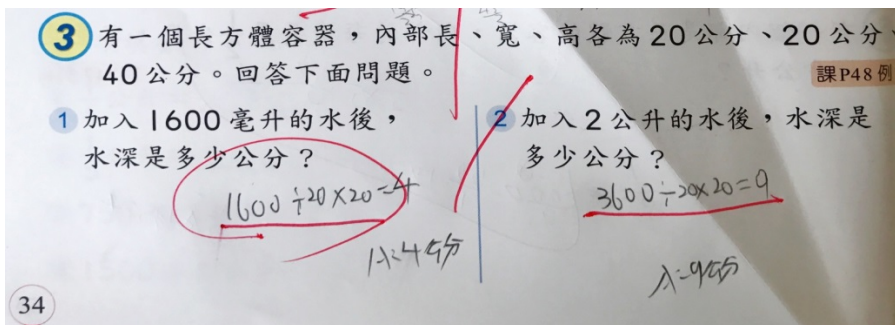 3 有一個長方體容器,內部長、寬、高各為20公分、20公分、
40公分。回答下面問題。
課P48例
1 加入1600毫升的水後,
水深是多少公分?
1600÷20×20=4
A:4公分
2 加入2公升的水後,水深是
多少公分?
3600÷20×20=9
A:9公分
34